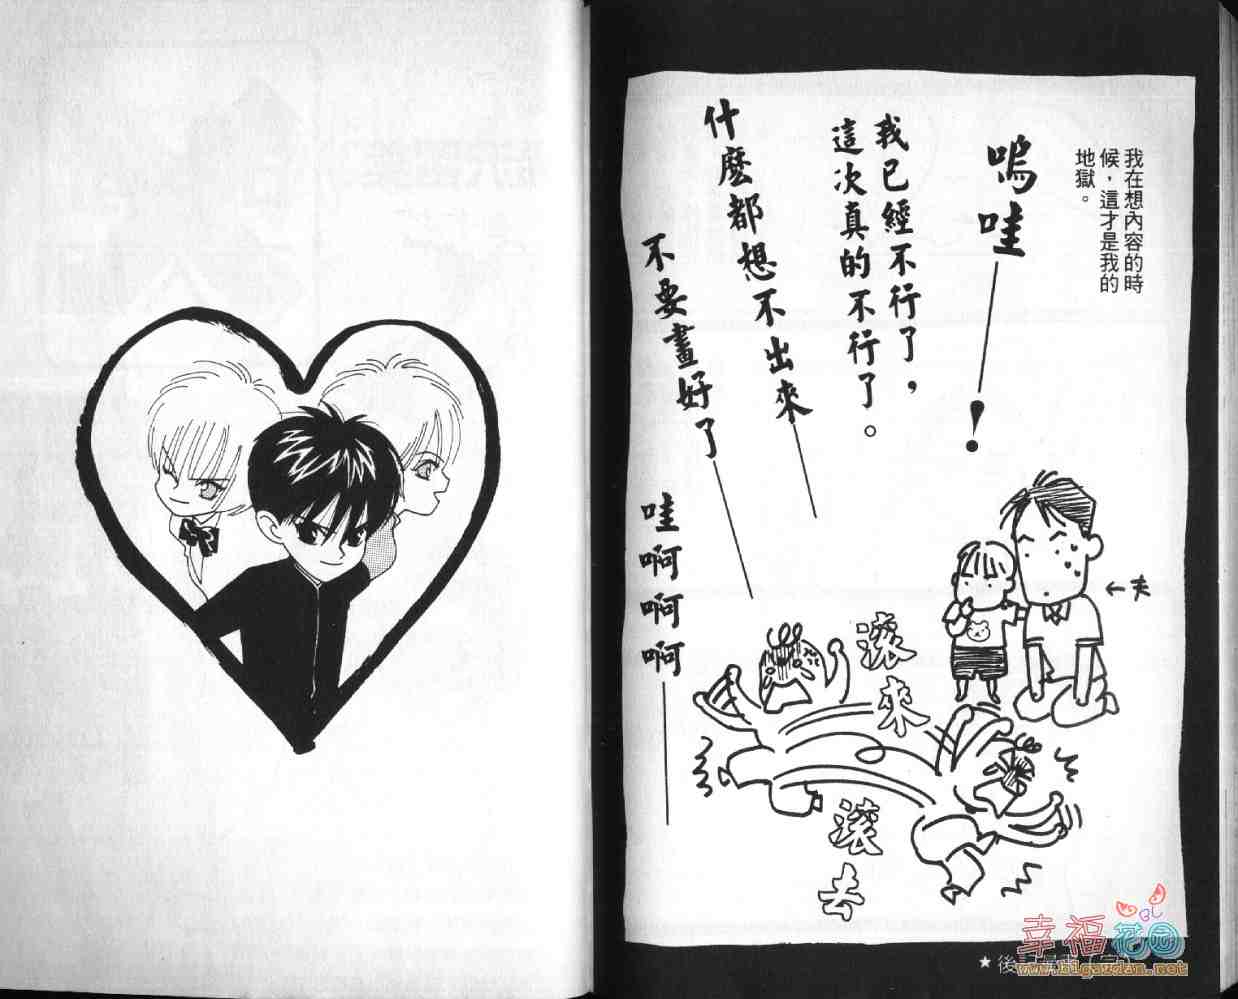 我在想內容的時
候，這才是我的
地獄。
嗚哇——！
我已經不行了，
這次真的不行了。
什麼都想不出來——
不要畫好了——
哇啊啊啊——
←夫
滾來
滾去
幸福花園
BL
www.bigazdan.net